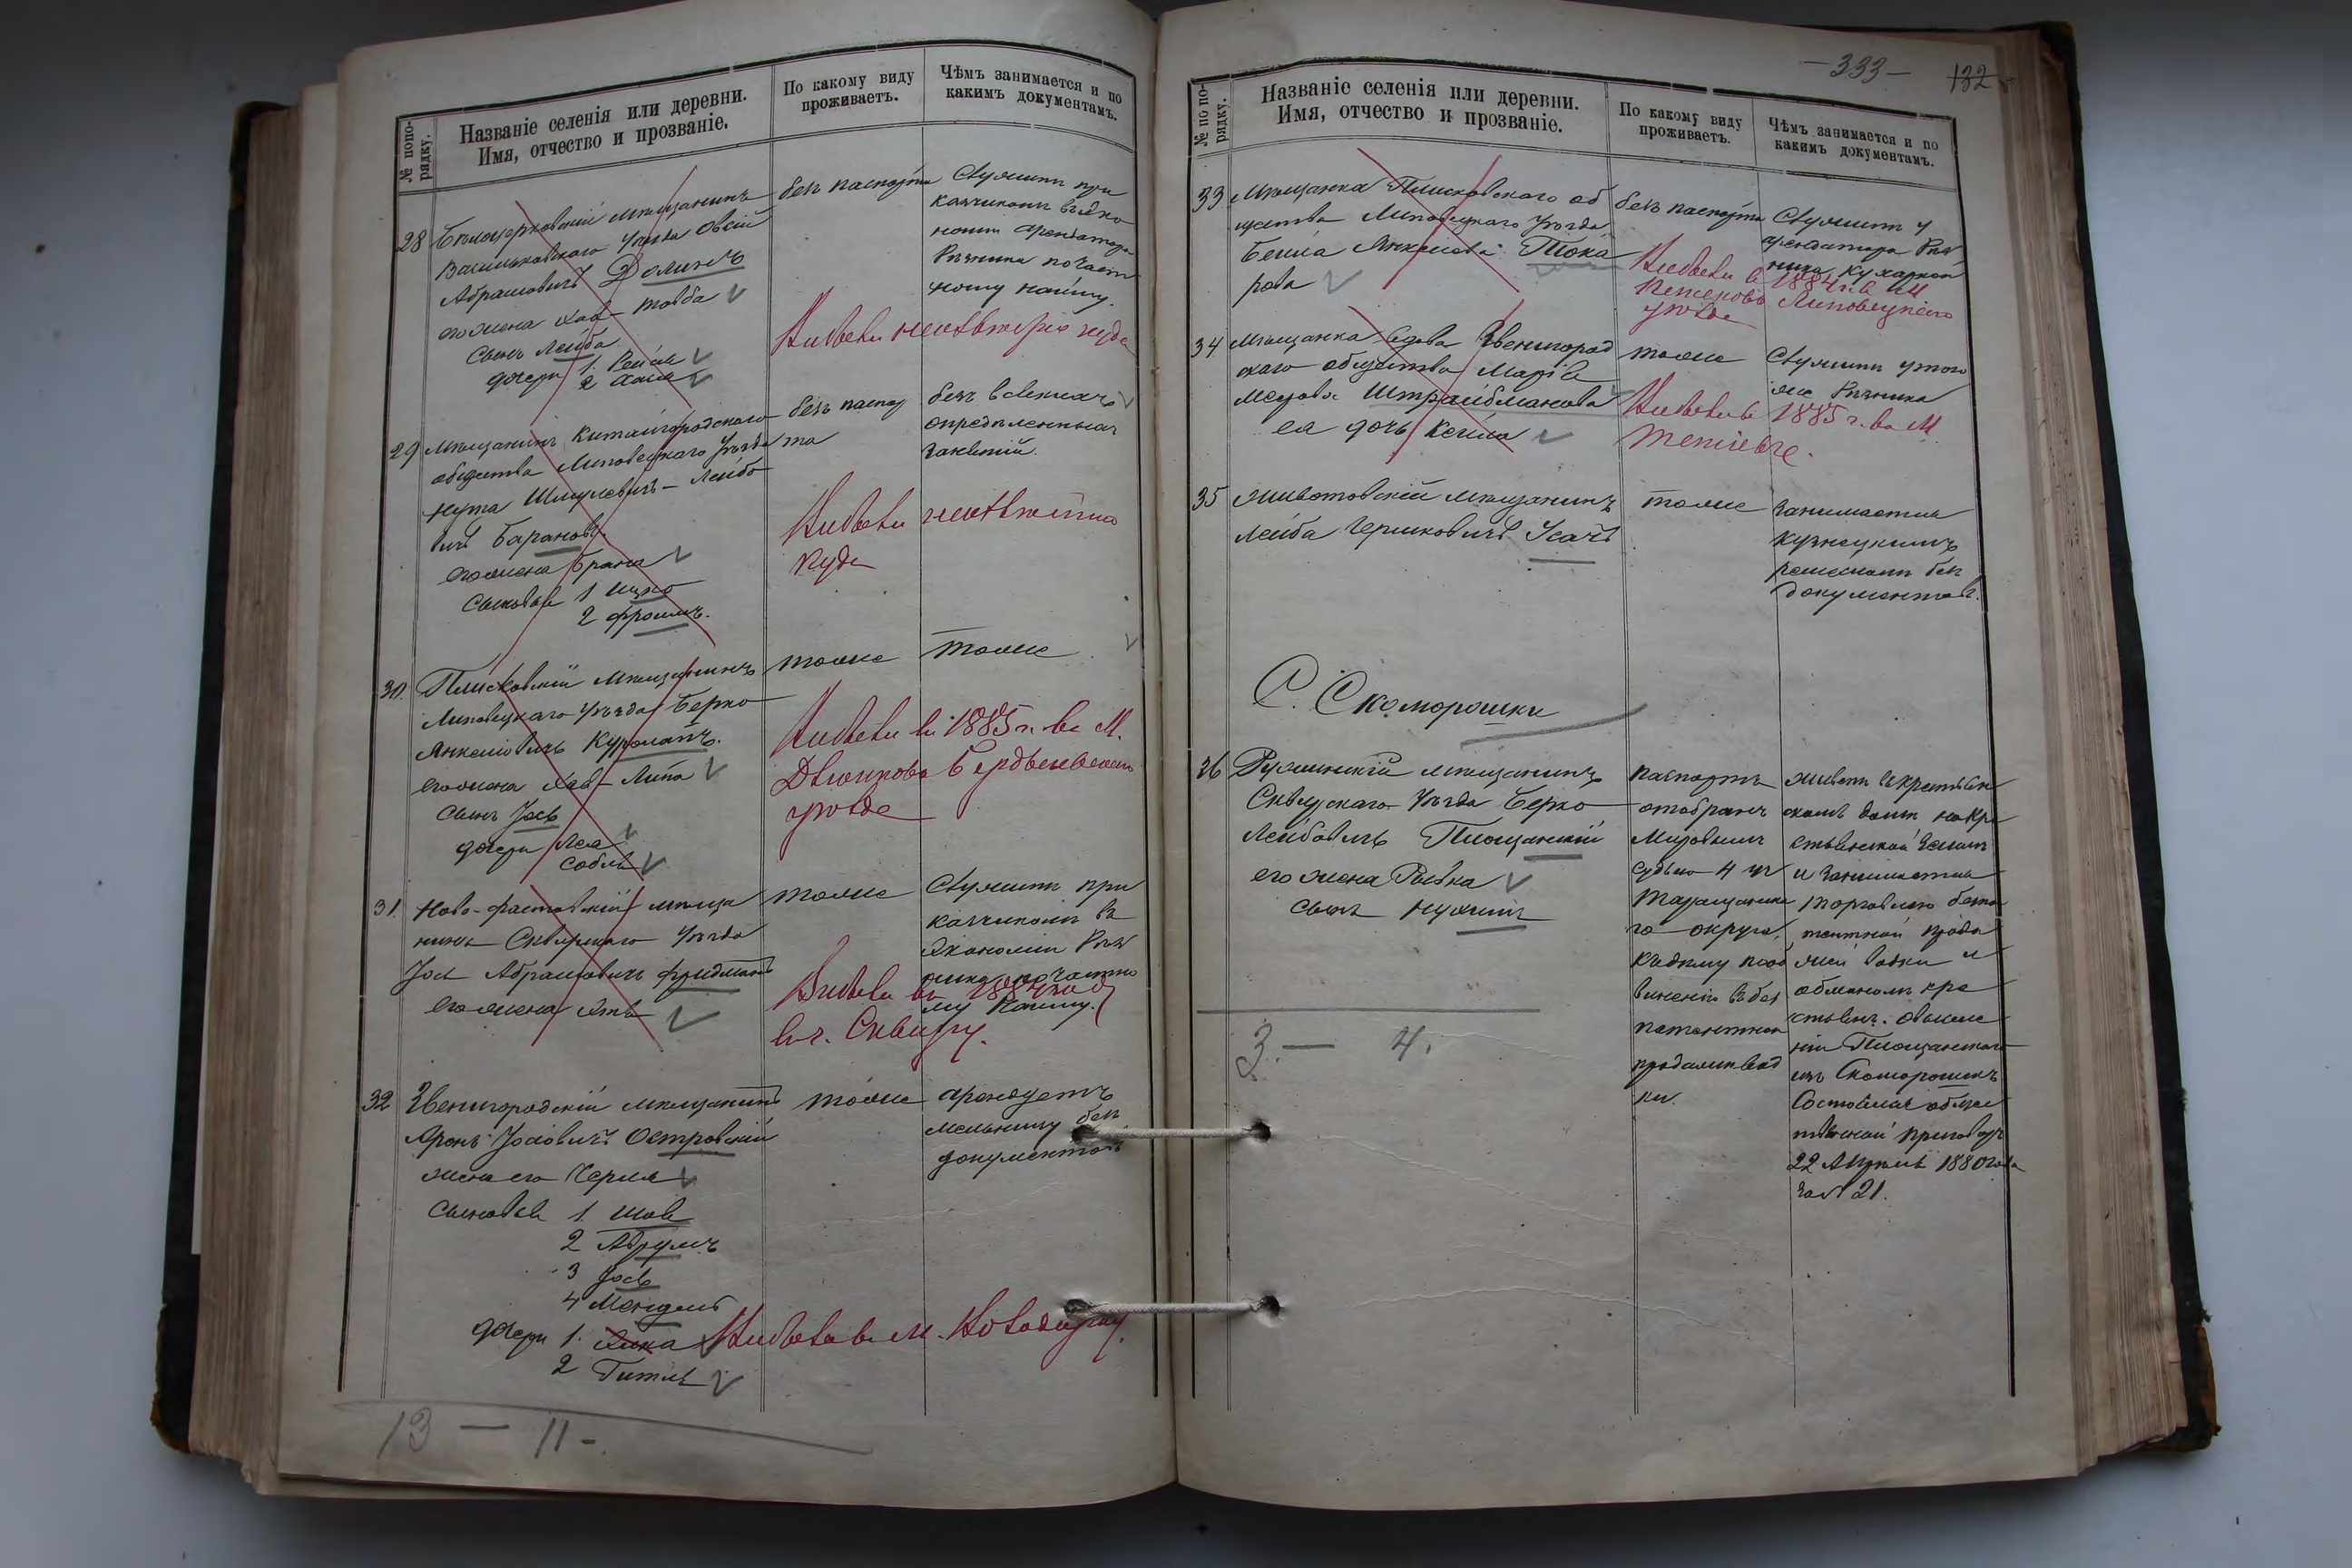 № попо-
рядку.
Названіе селенія или деревни.
Имя, отчество и прозваніе.
По какому виду
проживаетъ.
Чѣмъ занимается и по
какимъ документамъ.
28 Бѣлоцерковскій мѣщанинъ
Васильковскаго уѣзда Овсій
Абрамовичъ Долинъ
его жена Хая-Товба
сынъ Лейба
дочери 1. Рейзя
2 Хая
безъ паспорта
Служитъ при
кащикомъ въ эко
номіи арендатора
Рѣзника по част
ному найму.
Выбыли неизвѣстно куда
29 мѣщанинъ Китайгородскаго
общества Липовецкаго уѣзда
Нута Шмулевичъ-Лейбо
вичъ Барановъ
его жена Брана
сыновья 1 Ицко
2 Фроимъ.
безъ паспор
та
безъ всякихъ
опредѣленныхъ
занятій.
Выбыли неизвѣстно
куда
30. Плисковскій мѣщанинъ
Липовецкаго уѣзда Берко
Янкелiовичъ Куроматъ.
его жена Хая-Липа
сынъ Іось
дочери Лея
Собля
тоже
тоже
Выбыли въ 1885 г. въ М.
Дзюнково Бердичевскаго
уѣзда
31. Ново-фастовскій мѣща
нинъ Сквирскаго уѣзда
Іось Абрамовичъ Фридманъ
его жена Хая
тоже
Служитъ при
кащикомъ въ
экономіи Рѣз
ника по частно
му найму.
Выбыли въ 1884 году
въ г. Сквиру.
32 Звенигородскій мѣщанинъ
Аронъ Іосiовичъ Островскій
жена его Черня
сыновья 1. Шая
2 Абрумъ
3 Іось
4 Мендель
дочери 1. Хика
2 Гитля
тоже
арендуетъ
мельницу безъ
документовъ
Выбыла въ М. Володарку.
13 — 11 -.
— 333 —
132
№ по по-
рядку.
Названіе селенія или деревни.
Имя, отчество и прозваніе.
По какому виду
проживаетъ.
Чѣмъ занимается и по
какимъ документамъ.
33 Мѣщанка Плисковскаго об
щества Липовецкаго уѣзда
Бейла Янкелева Тока
рова
безъ паспорта
Служитъ у
арендатора Рѣз
ника кухаркой
Выбыла въ 1884 г. въ м
Липовецкаго
уѣзда
34 Мѣщанка вдова Звенигород
скаго общества Марія
Меерова Штраибманова
ея дочь Кейла
тоже
Служитъ у того
же Рѣзника
Выбыла въ 1885 г. въ М
Тетіевѣ.
35 Животовскій мѣщанинъ
Лейба Гершковичъ Усачъ
тоже
занимается
кузнецкимъ
ремесломъ безъ
документовъ.
С. Скоморошки
36 Ружинскій мѣщанинъ
Сквирскаго уѣзда Берко
Лейбовичъ Піощанскій
его жена Рывка
сынъ Нухимъ
паспортъ
отобранъ
Мировымъ
судьею 4 уч
Таращанска
го округа,
къ дѣлу по об
виненію въ без
патентной
продажи вод
ки.
живетъ въ крестьян
скомъ домѣ на кре
стьянской землѣ
и занимается
торговлею безпа
тентной прода
жей водки и
обманомъ кре
стьянъ. О выселе
ніи Піощанскаго
изъ Скоморошекъ
Состоялся обще
ственный приговоръ
22 Апрѣля 1880 года
за № 21.
3. — 4.